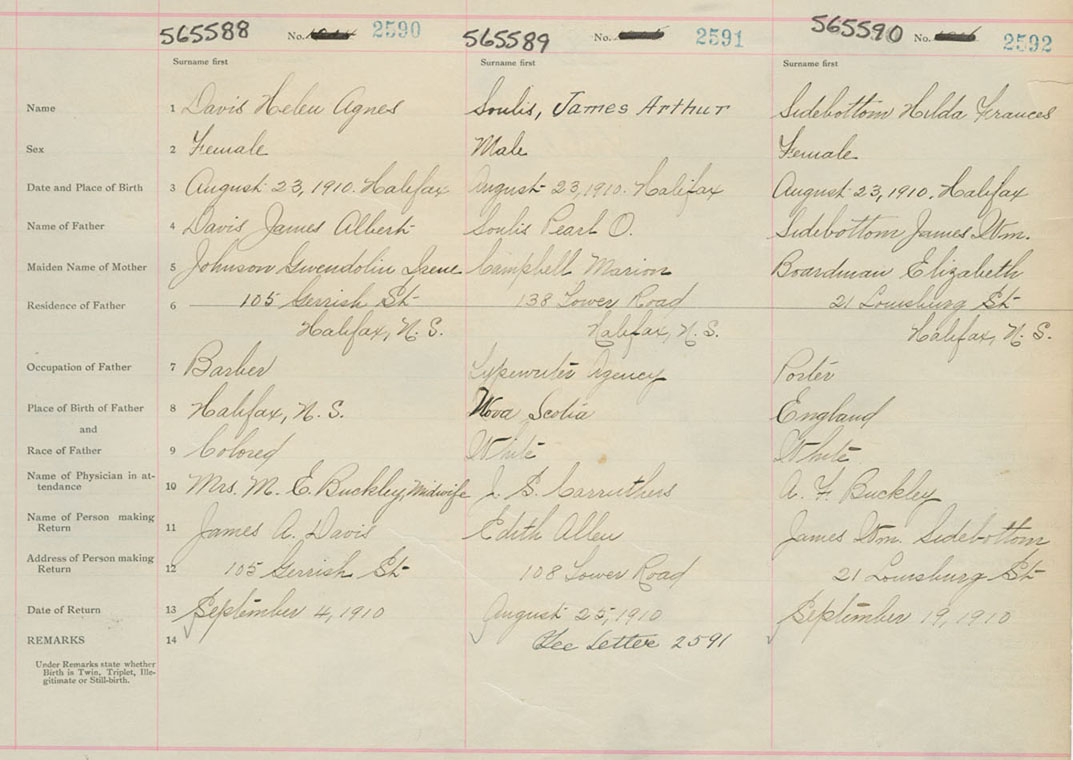 565588 No. 2590 565589 No. 2591 565590 No. 2592
Surname first Surname first Surname first
Name 1 Davis Helen Agnes Soulis, James Arthur Sidebottom Hilda Frances
Sex 2 Female Male Female
Date and Place of Birth 3 August 23, 1910. Halifax August 23, 1910. Halifax August 23, 1910. Halifax
Name of Father 4 Davis James Albert Soulis Pearl O. Sidebottom James Wm.
Maiden Name of Mother 5 Johnson Gwendolin Irene Campbell Marion Boardman Elizabeth
Residence of Father 6 105 Gerrish St 138 Lower Road 21 Louisburg St
Halifax, N. S. Halifax, N. S. Halifax, N. S.
Occupation of Father 7 Barber Typewriter Agency Porter
Place of Birth of Father 8 Halifax, N. S. Nova Scotia England
and
Race of Father 9 Colored White White
Name of Physician in at-
tendance 10 Mrs. M. E. Buckley, Midwife J. S. Carruthers A. F. Buckley
Name of Person making
Return 11 James A. Davis Edith Allen James Wm. Sidebottom
Address of Person making
Return 12 105 Gerrish St 108 Lower Road 21 Louisburg St
Date of Return 13 September 4, 1910 August 25, 1910 September 19, 1910
REMARKS 14 See Letter 2591
Under Remarks state whether
Birth is Twin, Triplet, Ille-
gitimate or Still-birth.